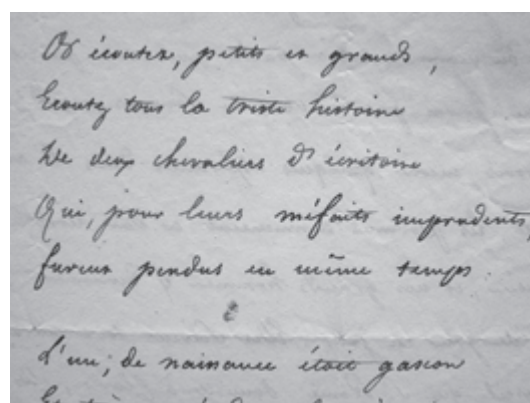 Or écoutez, petits et grands,
Ecoutez tous la triste histoire
De deux chevaliers d'écritoire
Qui, pour leurs méfaits imprudents,
furent pendus en même temps.
L'un, de naissance était gascon